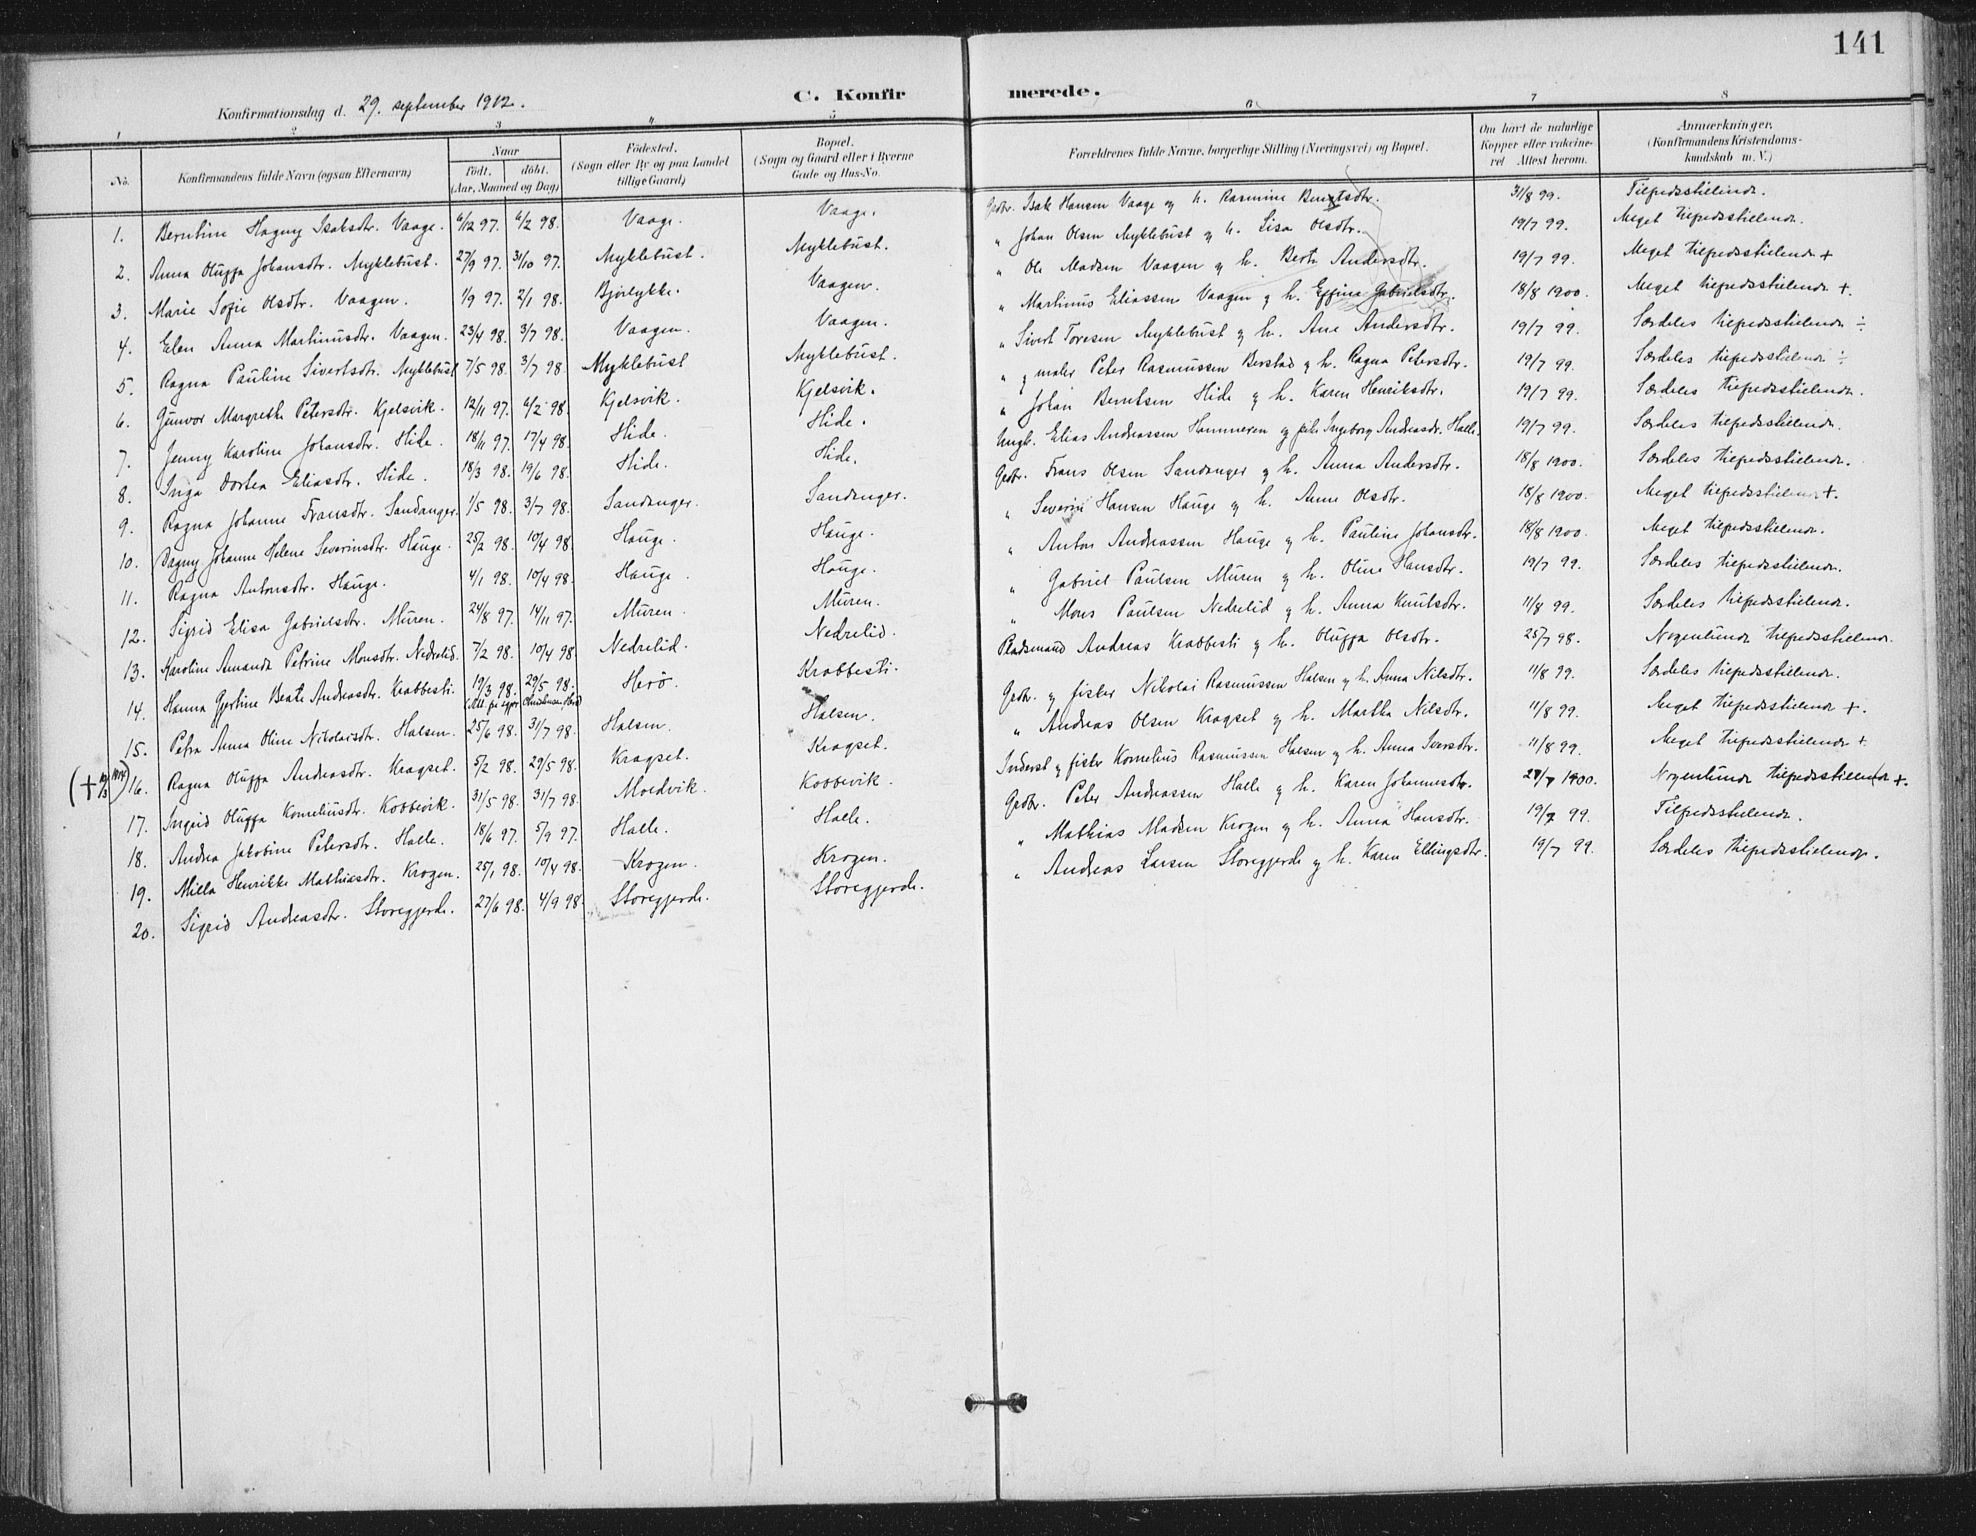 141
C. Konfirmerede.
Konfirmationsdag d. 29. september 1912.
1 2 3 4 5 6 7 8
No. Konfirmandens fulde Navn (ogsaa Efternavn) Naar født. døbt. (Aar, Maaned og Dag) Fødested. (Sogn eller By og paa Landet tillige Gaard) Bopæl. (Sogn og Gaard eller i Byerne Gade og Hus-No. Forældrenes fulde Navne, borgerlige Stilling (Næringsvei) og Bopæl. Om havt de naturlige Kopper eller vakcineret. Attest herom. Anmærkninger. (Konfirmandens Kristendomskundskab m. V.)
1. Berntine Hagny Isaksdtr. Vaage. 6/12 97. 6/2 98. Vaage. Vaage. Grdbr. Isak Hansen Vaage og h. Rasmine Berntsdtr. 31/8 99. Tilfredsstillende.
2. Anna Oluffa Johansdtr. Myklebust. 27/9 97. 31/10 97. Myklebust. Myklebust. " Johan Olsen Myklebust og h. Lisa Olsdtr. 19/7 99. Meget tilfredsstillende.
3. Marie Sofie Olsdtr. Vaagen. 1/9 97. 2/1 98. Bjørlykke. Vaagen. " Ole Madsen Vaagen og h. Berte Andersdtr. 19/7 99. Meget tilfredsstillende +
4. Elen Anna Martinusdtr. Vaagen. 23/4 98. 3/7 98. Vaagen. Vaagen. " Martinus Eliassen Vaagen og h. Effina Gabrielsdtr. 18/8 1900. Meget tilfredsstillende +.
5. Ragna Pauline Sivertsdtr. Myklebust 7/5 98. 3/7 98. Myklebust Myklebust. " Sivert Toresen Myklebust og h. Ane Andersdtr. 19/7 99. Særdeles tilfredsstillende ÷
6. Gunvor Margrethe Petersdtr. Kjelsvik. 12/11 97. 6/2 98. Kjelsvik. Kjelsvik. " og maler Peter Rasmussen Berstad og h. Ragna Petersdtr. 19/7 99. Særdeles tilfredsstillende ÷
7. Jenny Karoline Johansdtr. Hide. 18/11 97. 17/4 98. Hide. Hide. " Johan Berntsen Hide og h. Karen Henriksdtr. 19/7 99. Særdeles tilfredsstillende.
8. Inga Dortea Eliasdtr. Hide. 18/3 98. 19/6 98. Hide. Hide. Ungk. Elias Andreassen Hammeren og pike Ingeborg Andreasdr. Halle. 19/7 99. Særdeles tilfredsstillende.
9. Ragna Johanne Fransdtr. Sandanger. 1/5 98. 3/7 98. Sandanger. Sandanger. Grdbr. Frans Olsen Sandanger og h. Anna Andersdtr. 18/8 1900. Særdeles tilfredsstillende.
10. Dagny Johanne Helene Severinsdtr. Hauge. 25/2 98. 10/4 98. Hauge. Hauge. " Severin Hansen Hauge og h. Anne Olsdtr. 18/8 1900. Meget tilfredsstillende +.
11. Ragna Antonsdtr. Hauge. 4/1 98. 10/4 98. Hauge. Hauge. " Anton Andreassen Hauge og h. Pauline Johansdtr. 18/8 1900. Meget tilfredsstillende.
12. Sigrid Elisa Gabrielsdtr. Muren. 24/8 97. 14/11 97. Muren. Muren. " Gabriel Paulsen Muren og h. Oline Hansdtr. 19/7 99. Særdeles tilfredsstillende.
13. Karoline Amanda Petrine Monsdtr. Nedrelid. 7/2 98. 10/4 98. Nedrelid. Nedrelid. " Mons Paulsen Nedrelid og h. Anna Knutsdtr. 11/8 99. Særdeles tilfredsstillende.
14. Hanna Gjertine Beate Andreasdtr. Krabbesti. 19/3 98. 29/5 98. Herö. Krabbesti. Pladsmand Andreas Krabbesti og h. Oluffa Olsdtr. 25/7 98. Nogenlunde tilfredsstillende.
15. Petra Anna Oline Nikolaisdtr. Halsen. 25/6 98. 31/7 98. Halsen. Halsen. Grdbr. og fisker Nikolai Rasmussen Halsen og h. Anna Nilsdtr. 11/8 99. Særdeles tilfredsstillende.
16. Ragna Oluffa Andreasdtr. Kragset. 5/2 98. 29/5 98. Kragset. Kragset. " Andreas Olsen Kragset og h. Martha Nilsdtr. 11/8 99. Meget tilfredsstillende +.
17. Ingrid Oluffa Korneliusdtr. Kobbevik. 31/5 98. 31/7 98. Moldvik. Kobbevik. Inderst og fisker Kornelius Rasmussen Halsen og h. Anna Iversdtr. 11/8 99. Meget tilfredsstillende +
18. Andrea Jakobine Petersdtr. Halle. 18/6 97. 5/9 97. Halle. Halle. Grdbr. Peter Andreassen Halle og h. Karen Johannesdtr. 1900. Nogenlunde tilfredsstillende +.
19. Milla Henrikke Mathiasdtr. Krogen. 25/1 98. 10/4 98. Krogen. Krogen. " Mathias Madsen Krogen og h. Anna Hansdtr. 19/7 99. Tilfredsstillende.
20. Sigrid Andreasdtr. Storegjerde. 27/6 98. 4/9 98. Storegjerde. Storegjerde. " Andreas Larsen Storegjerde og h. Karen Ellingsdtr. 19/7 99. Særdeles tilfredsstillende.